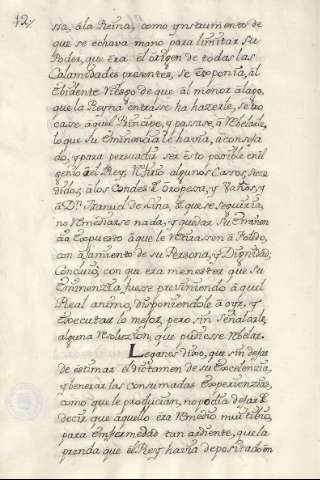 127
ssa, âla Reina, como ynstrumento de
que se echava mano para limitar su
Poder, que era el origen de todas las
Calamidades presentes, se exponia, âl
Evidente riesgo de que al menor
que la Reyna entrasse ha hazerle, se
case âquel Principe, y passase, â
lo que su Eminencia le havia, âconseja
do, y para persuadir ser esto posible en il
genio del Rey, refirio algunos Cassos, suce
didos, âlos Condes de Oropesa, y Baños, y
â Dn. Manuel de Lira, de que se seguiria,
no remediarse nada, y quedar su Eminen
cia Expuesto âque le retirassen â Toledo,
con âjamiento de su Persona, y Dignidad;
Concluió, con que era menester que su
Eminenzia, fuese previniendo âquel
Real animo, disponiendole â oyr, y
Executar lo mejor, pero sin señalarle,
alguna resoluzion, que pudiese rebelar.
Leganes dixo, que sin dejar
de estimar el dictamen de su Excelenzia,
y benerar las consumadas Experienzias,
como que le produzian, no podia dejar de
decir que âquello era remedio mui tibio,
para enfermedad tan ardiente, que la
prenda que el Rey havia depositado en